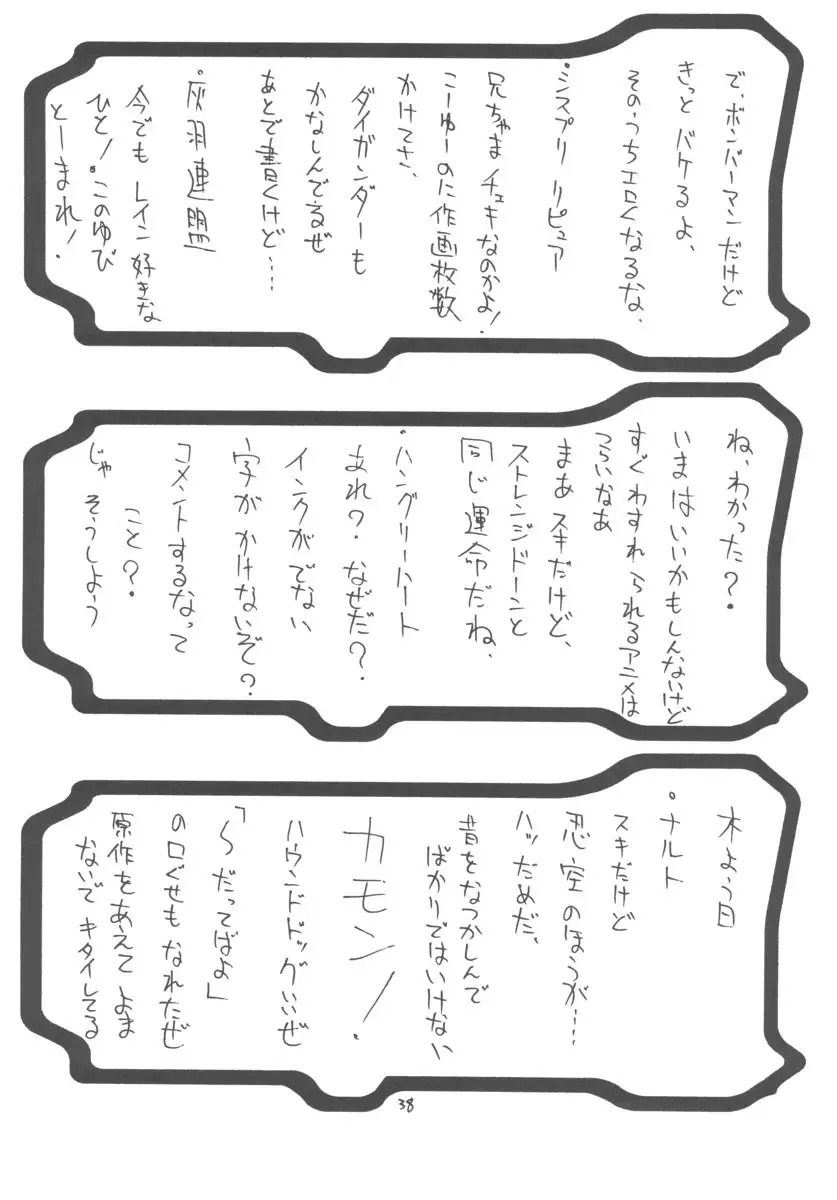 で、ボンバーマンだけど
きっと バケるよ、
そのうちエロくなるな、
・シスプリ リピュア
兄ちゃまチェキなのかよ!
こーゆーのに作画枚数
かけてさ、
ダイガンダーも
かなしんでるぜ
あとで書くけど…
・灰羽連盟
今でも レイン 好きな
ひと!このゆび
とーまれ!
ね、わかった?
いまはいいかもしんないけど
すぐわすれられるアニメは
つらいなあ
まあ スキだけど、
ストレンジドーンと
同じ運命だね、
・ハングリーハート
あれ? なぜだ?
インクがでない
字が かけないぞ?
コメントするなって
こと?
じゃ そうしよう
木よう日
・ナルト
スキだけど
忍空 のほうが…
ハッ だめだ、
昔をなつかしんで
ばかりではいけない
カモン!
ハウンドドッグいいぜ
「〜だってばよ」
の口ぐせも なれたぜ
原作をあえて よま
ないで キタイしてる
38